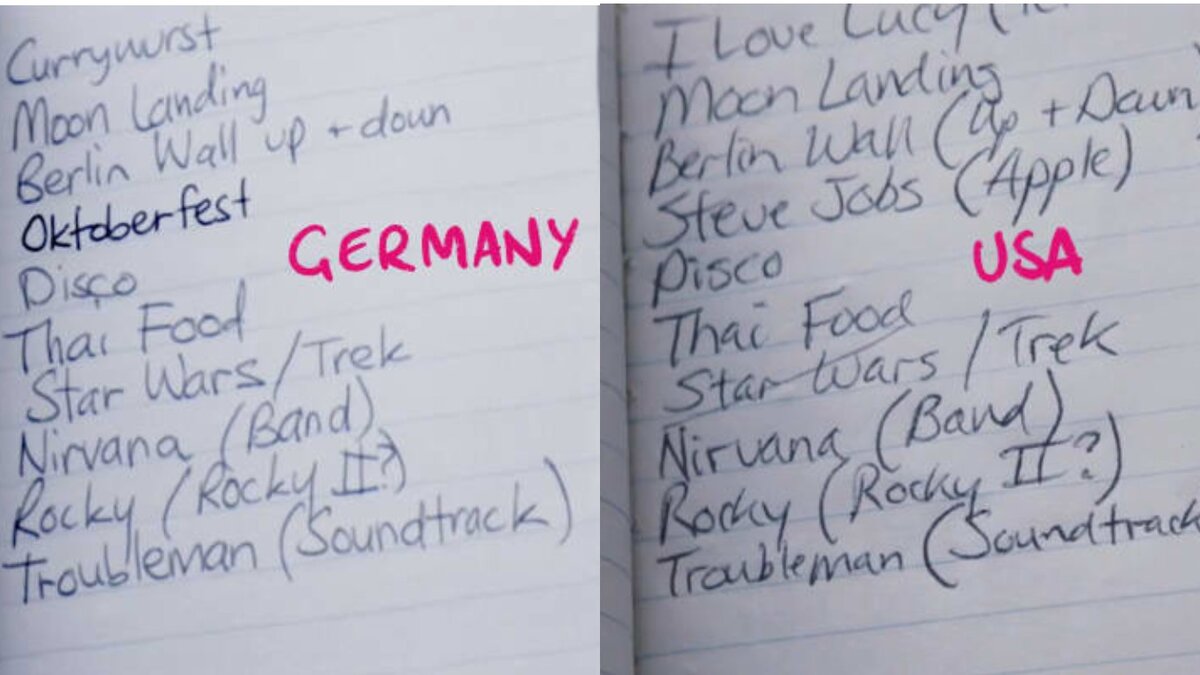 Currywurst
Moon Landing
Berlin Wall up + down
Oktoberfest
Disco
Thai Food
Star Wars / Trek
Nirvana (Band)
Rocky (Rocky II?)
Troubleman (Soundtrack)
GERMANY
I Love Lucy (
Moon Landing
Berlin Wall (Up + Down
Steve Jobs (Apple)
Disco
Thai Food
Star Wars / Trek
Nirvana (Band)
Rocky (Rocky II?)
Troubleman (Soundtrack
USA